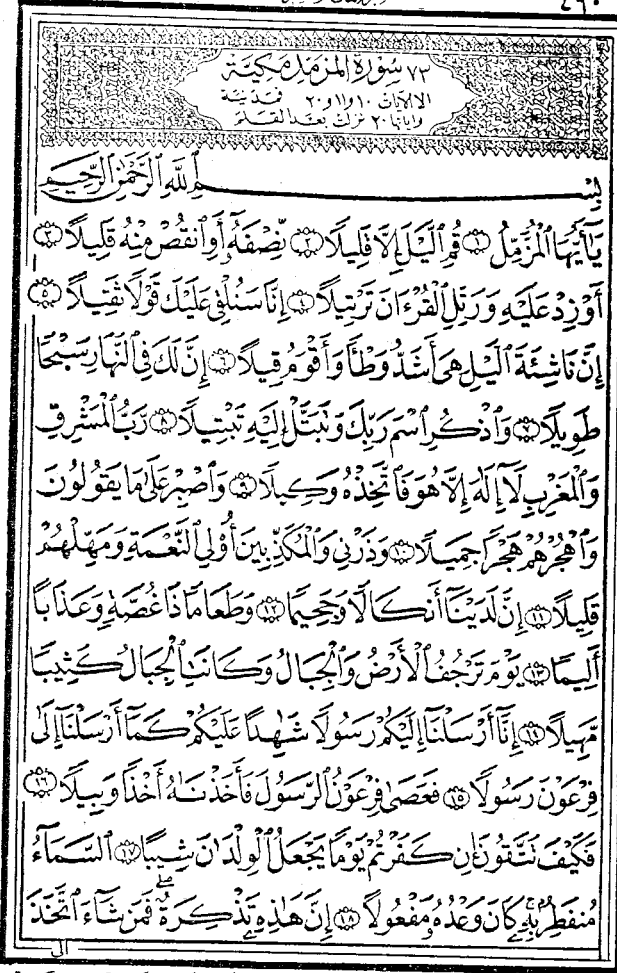 ٤٦٠
(٧٣) سُورَةُ المُزَّمِّل مَكيَّة
الا الآيات ١٠ و ١١ و ٢٠ فمدنية
وآياتها ٢٠ نزلت بعد القلم
بِسْمِ ٱللَّهِ ٱلرَّحْمَٰنِ ٱلرَّحِيمِ
يَٰٓأَيُّهَا ٱلْمُزَّمِّلُ ١ قُمِ ٱلَّيْلَ إِلَّا قَلِيلًا ٢ نِّصْفَهُۥٓ أَوِ ٱنقُصْ مِنْهُ قَلِيلًا ٣
أَوْ زِدْ عَلَيْهِ وَرَتِّلِ ٱلْقُرْءَانَ تَرْتِيلًا ٤ إِنَّا سَنُلْقِى عَلَيْكَ قَوْلًا ثَقِيلًا ٥
إِنَّ نَاشِئَةَ ٱلَّيْلِ هِىَ أَشَدُّ وَطْـًٔا وَأَقْوَمُ قِيلًا ٦ إِنَّ لَكَ فِى ٱلنَّهَارِ سَبْحًا
طَوِيلًا ٧ وَٱذْكُرِ ٱسْمَ رَبِّكَ وَتَبَتَّلْ إِلَيْهِ تَبْتِيلًا ٨ رَّبُّ ٱلْمَشْرِقِ
وَٱلْمَغْرِبِ لَآ إِلَٰهَ إِلَّا هُوَ فَٱتَّخِذْهُ وَكِيلًا ٩ وَٱصْبِرْ عَلَىٰ مَا يَقُولُونَ
وَٱهْجُرْهُمْ هَجْرًا جَمِيلًا ١٠ وَذَرْنِى وَٱلْمُكَذِّبِينَ أُو۟لِى ٱلنَّعْمَةِ وَمَهِّلْهُمْ
قَلِيلًا ١١ إِنَّ لَدَيْنَآ أَنكَالًا وَجَحِيمًا ١٢ وَطَعَامًا ذَا غُصَّةٍ وَعَذَابًا
أَلِيمًا ١٣ يَوْمَ تَرْجُفُ ٱلْأَرْضُ وَٱلْجِبَالُ وَكَانَتِ ٱلْجِبَالُ كَثِيبًا
مَّهِيلًا ١٤ إِنَّآ أَرْسَلْنَآ إِلَيْكُمْ رَسُولًا شَٰهِدًا عَلَيْكُمْ كَمَآ أَرْسَلْنَآ إِلَىٰ
فِرْعَوْنَ رَسُولًا ١٥ فَعَصَىٰ فِرْعَوْنُ ٱلرَّسُولَ فَأَخَذْنَٰهُ أَخْذًا وَبِيلًا ١٦
فَكَيْفَ تَتَّقُونَ إِن كَفَرْتُمْ يَوْمًا يَجْعَلُ ٱلْوِلْدَٰنَ شِيبًا ١٧ ٱلسَّمَآءُ
مُنفَطِرٌۢ بِهِۦ كَانَ وَعْدُهُۥ مَفْعُولًا ١٨ إِنَّ هَٰذِهِۦ تَذْكِرَةٌ فَمَن شَآءَ ٱتَّخَذَ